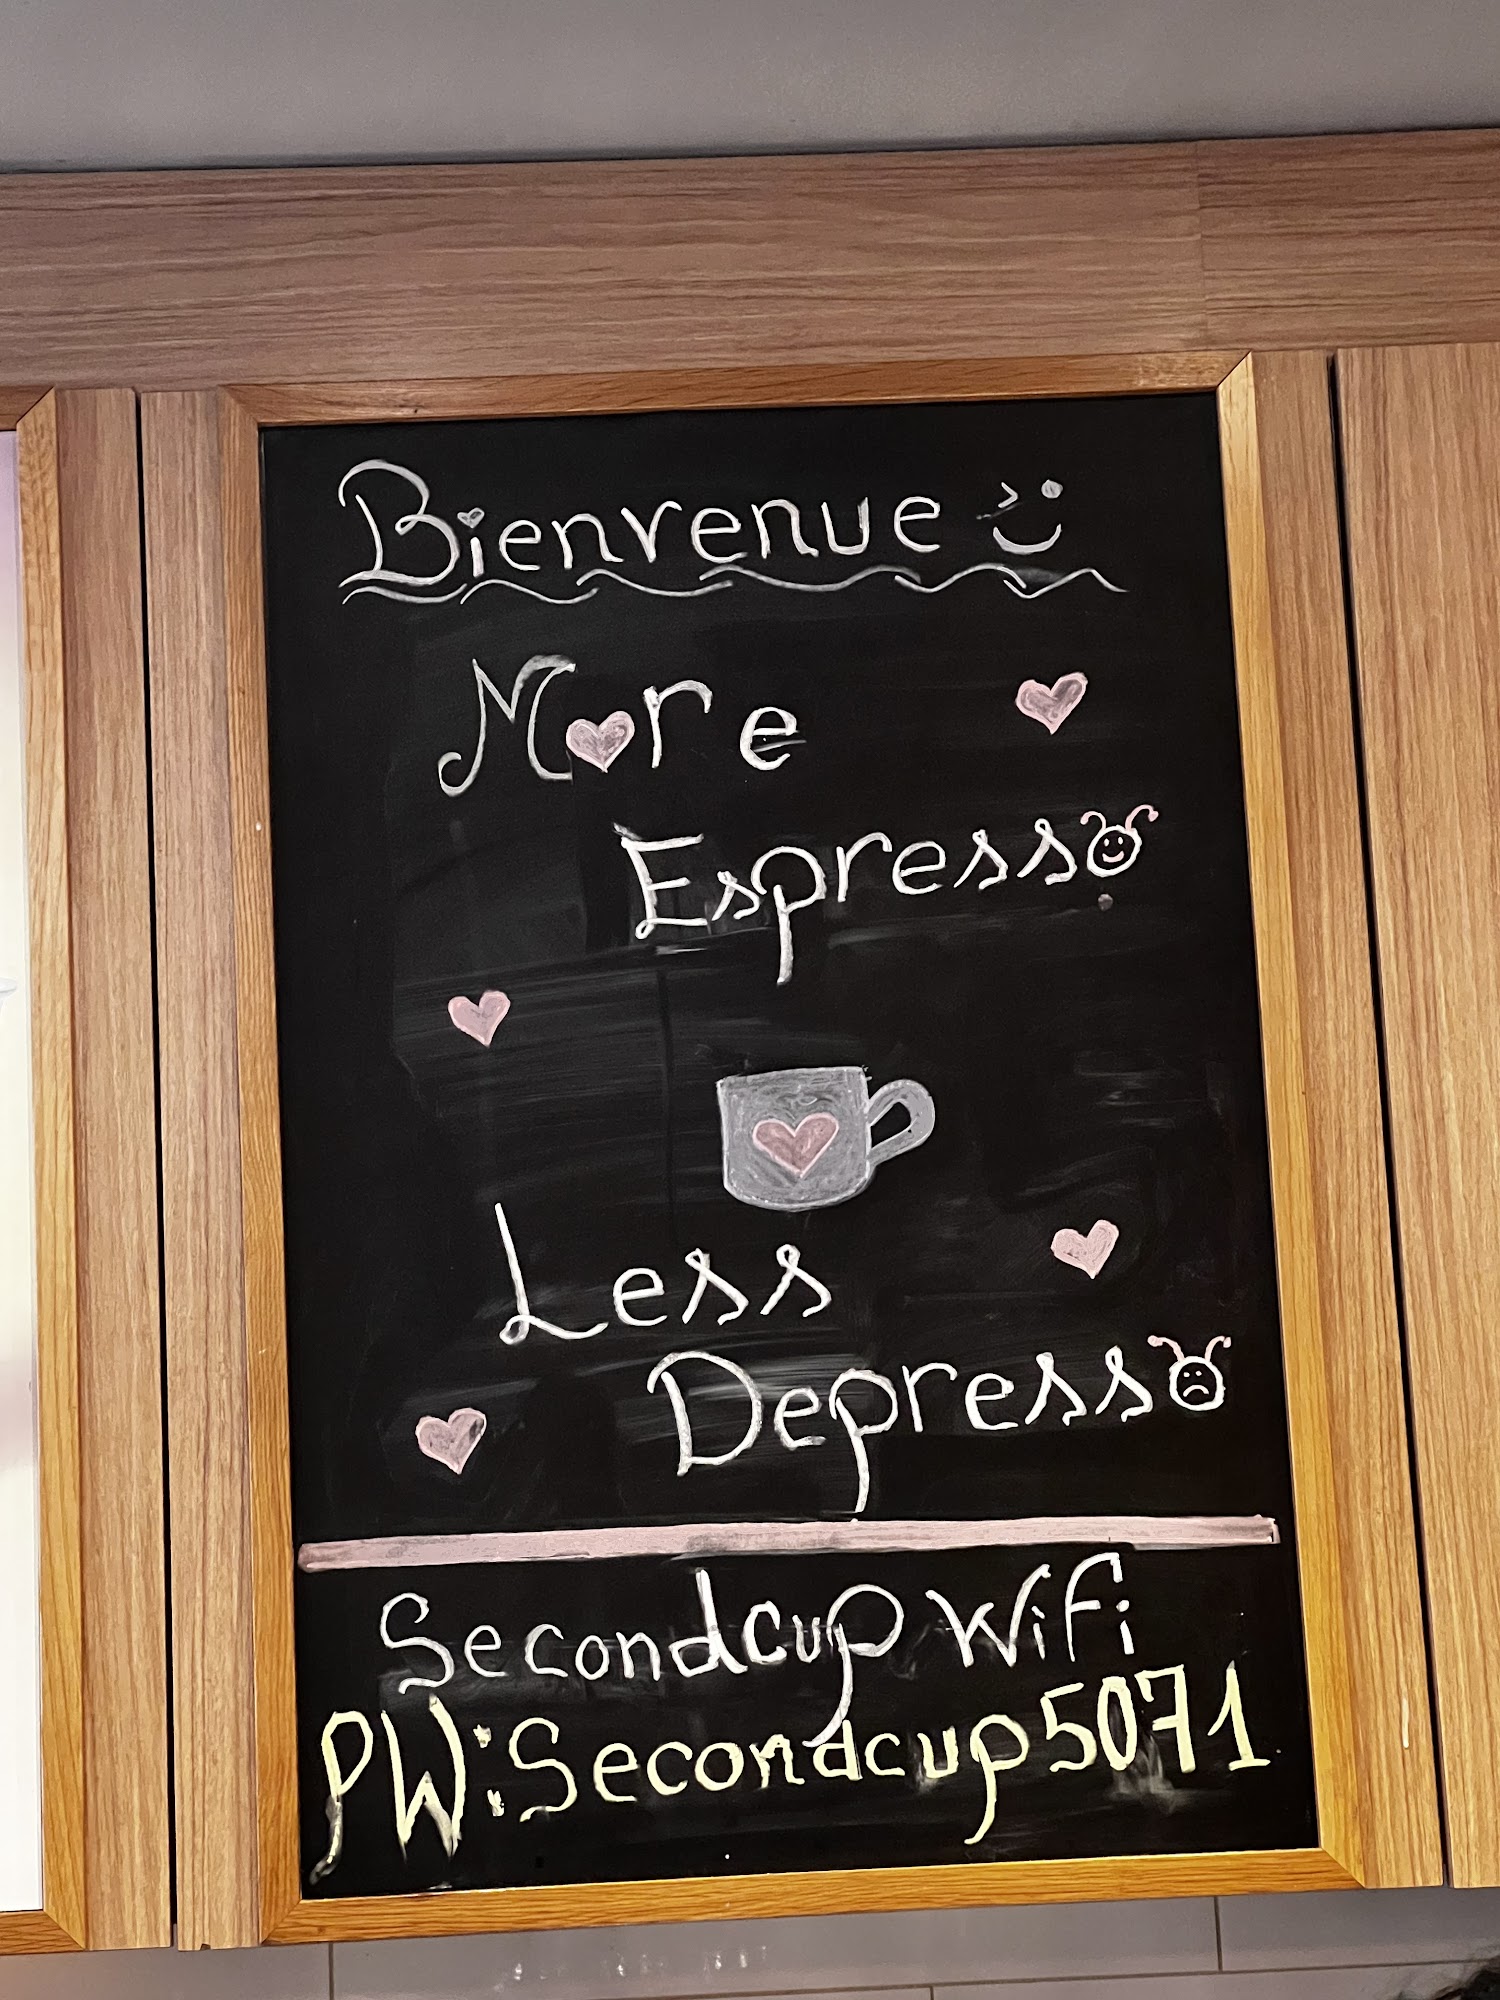 Bienvenue
More
Espresso
Less
Depresso
Secondcup Wifi
PW:Secondcup5071